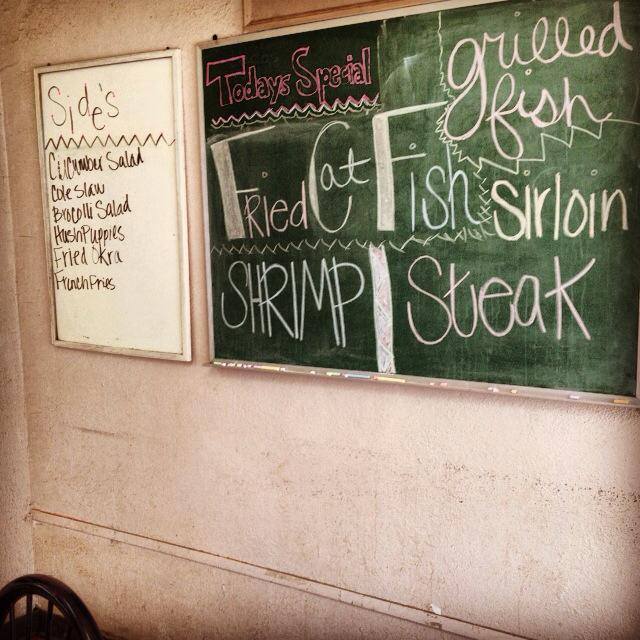 Side's
Cucumber Salad
Cole slaw
Brocolli Salad
HushPuppies
Fried Okra
French Fries
Todays Special
Fried Cat Fish
SHRIMP
grilled
fish
Sirloin
Steak